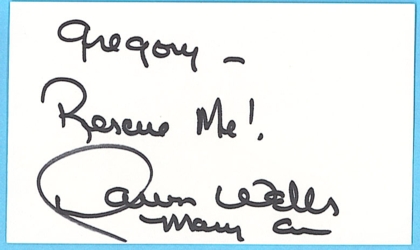 Gregory -
Rescue Me!
Dawn Wells
Mary Ann